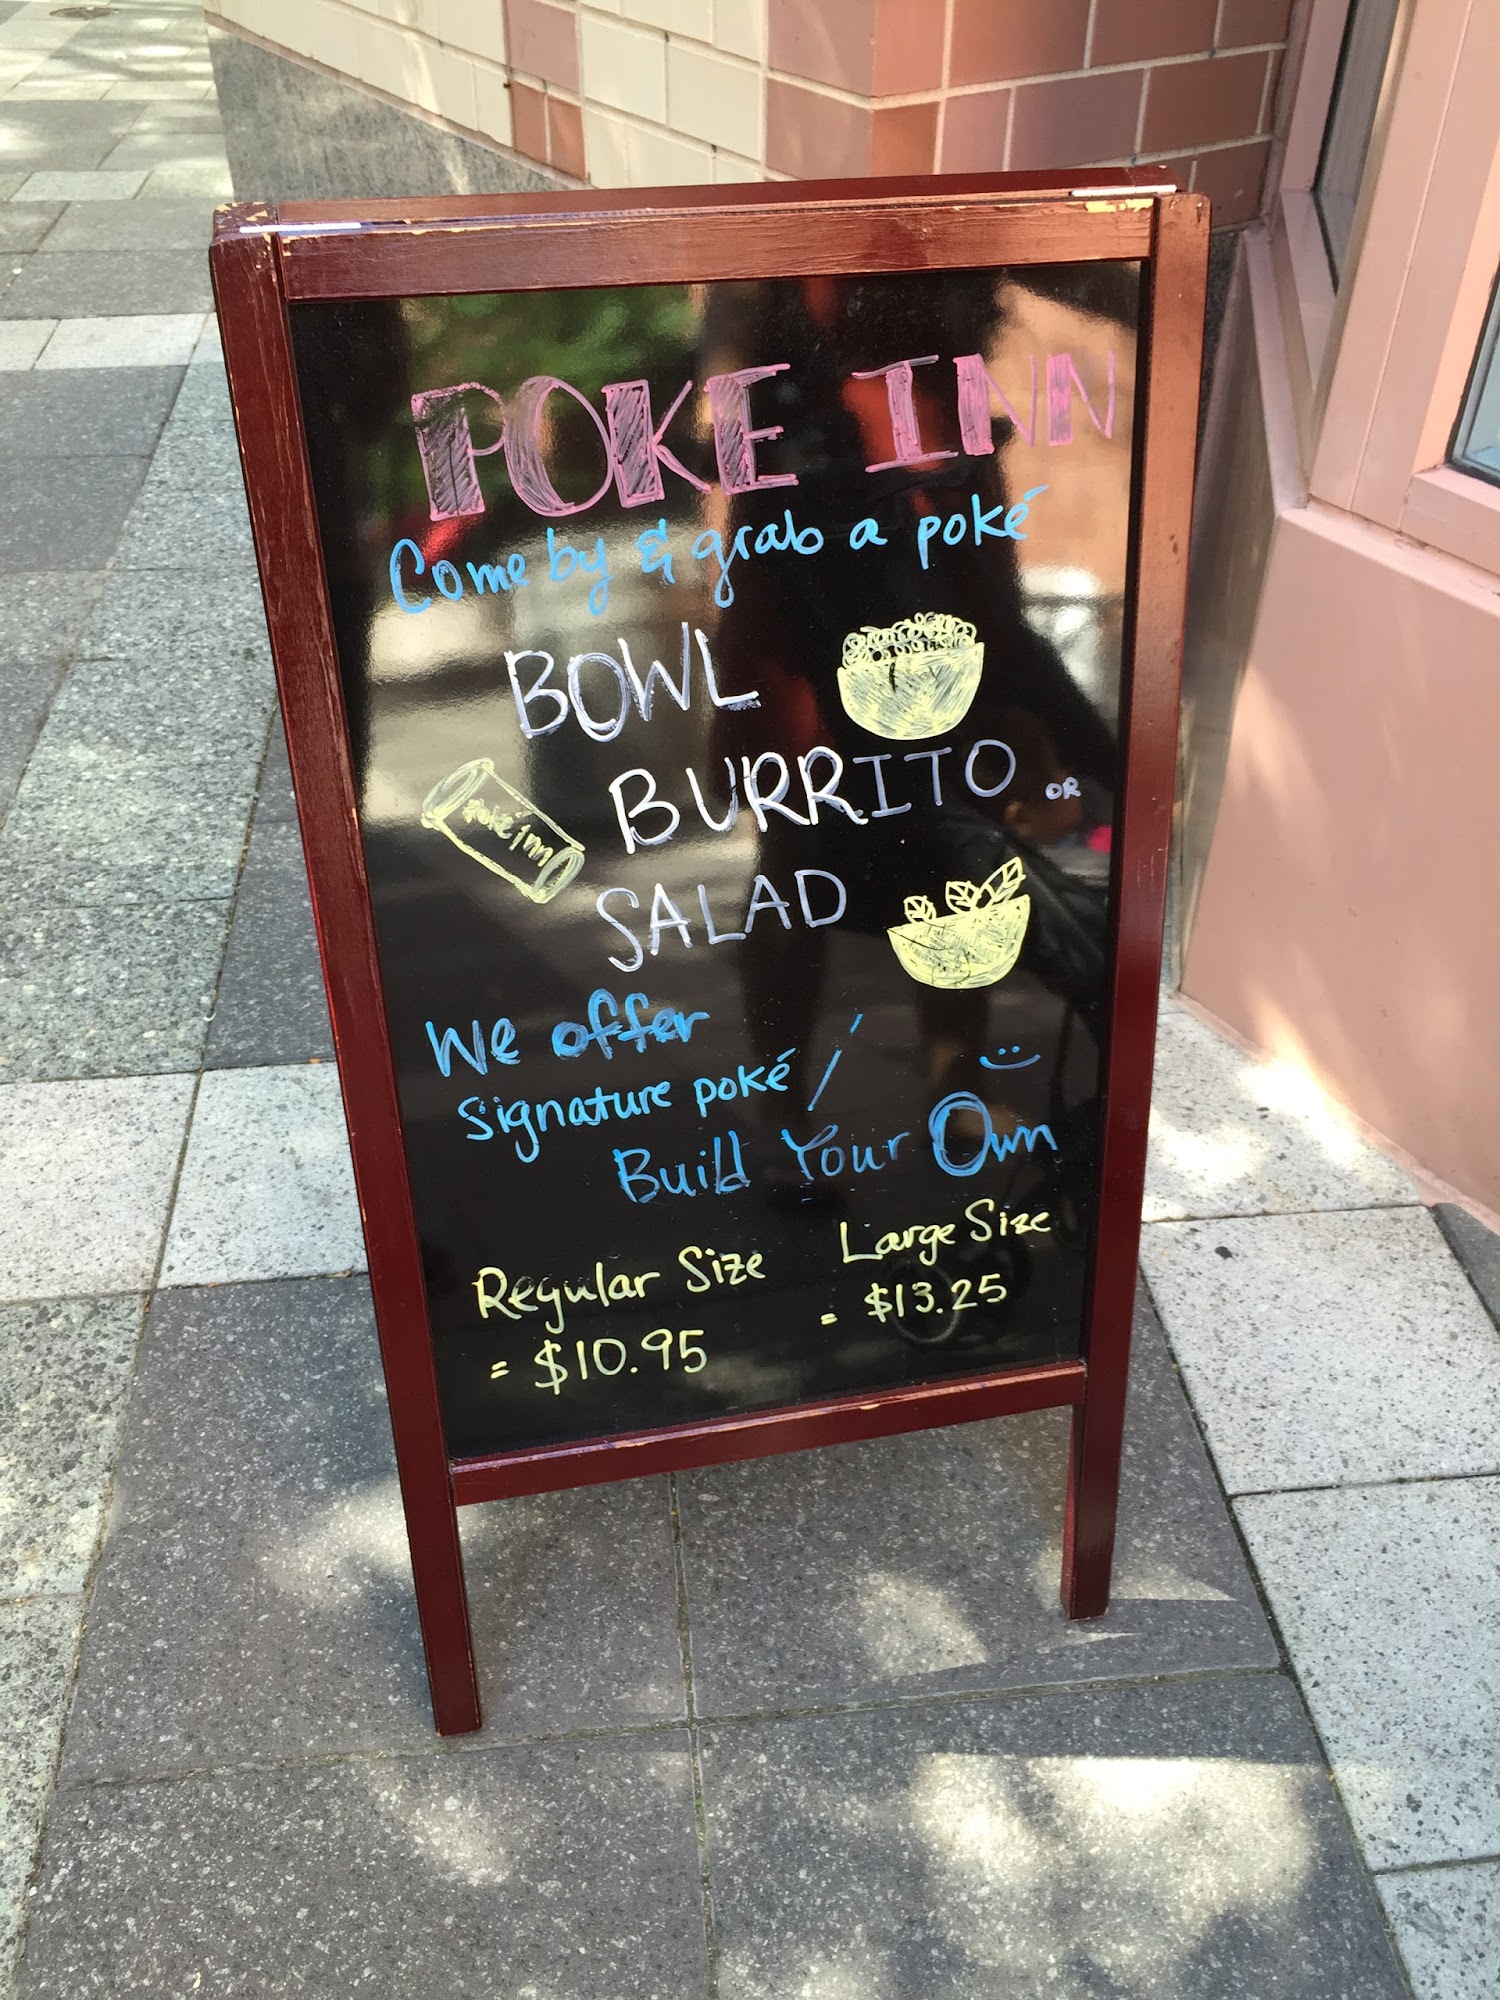 POKE INN
Come by & grab a poké
BOWL
BURRITO OR
poké inn
SALAD
We offer
signature poké /
Build Your Own
Regular Size
= $10.95
Large Size
= $13.25